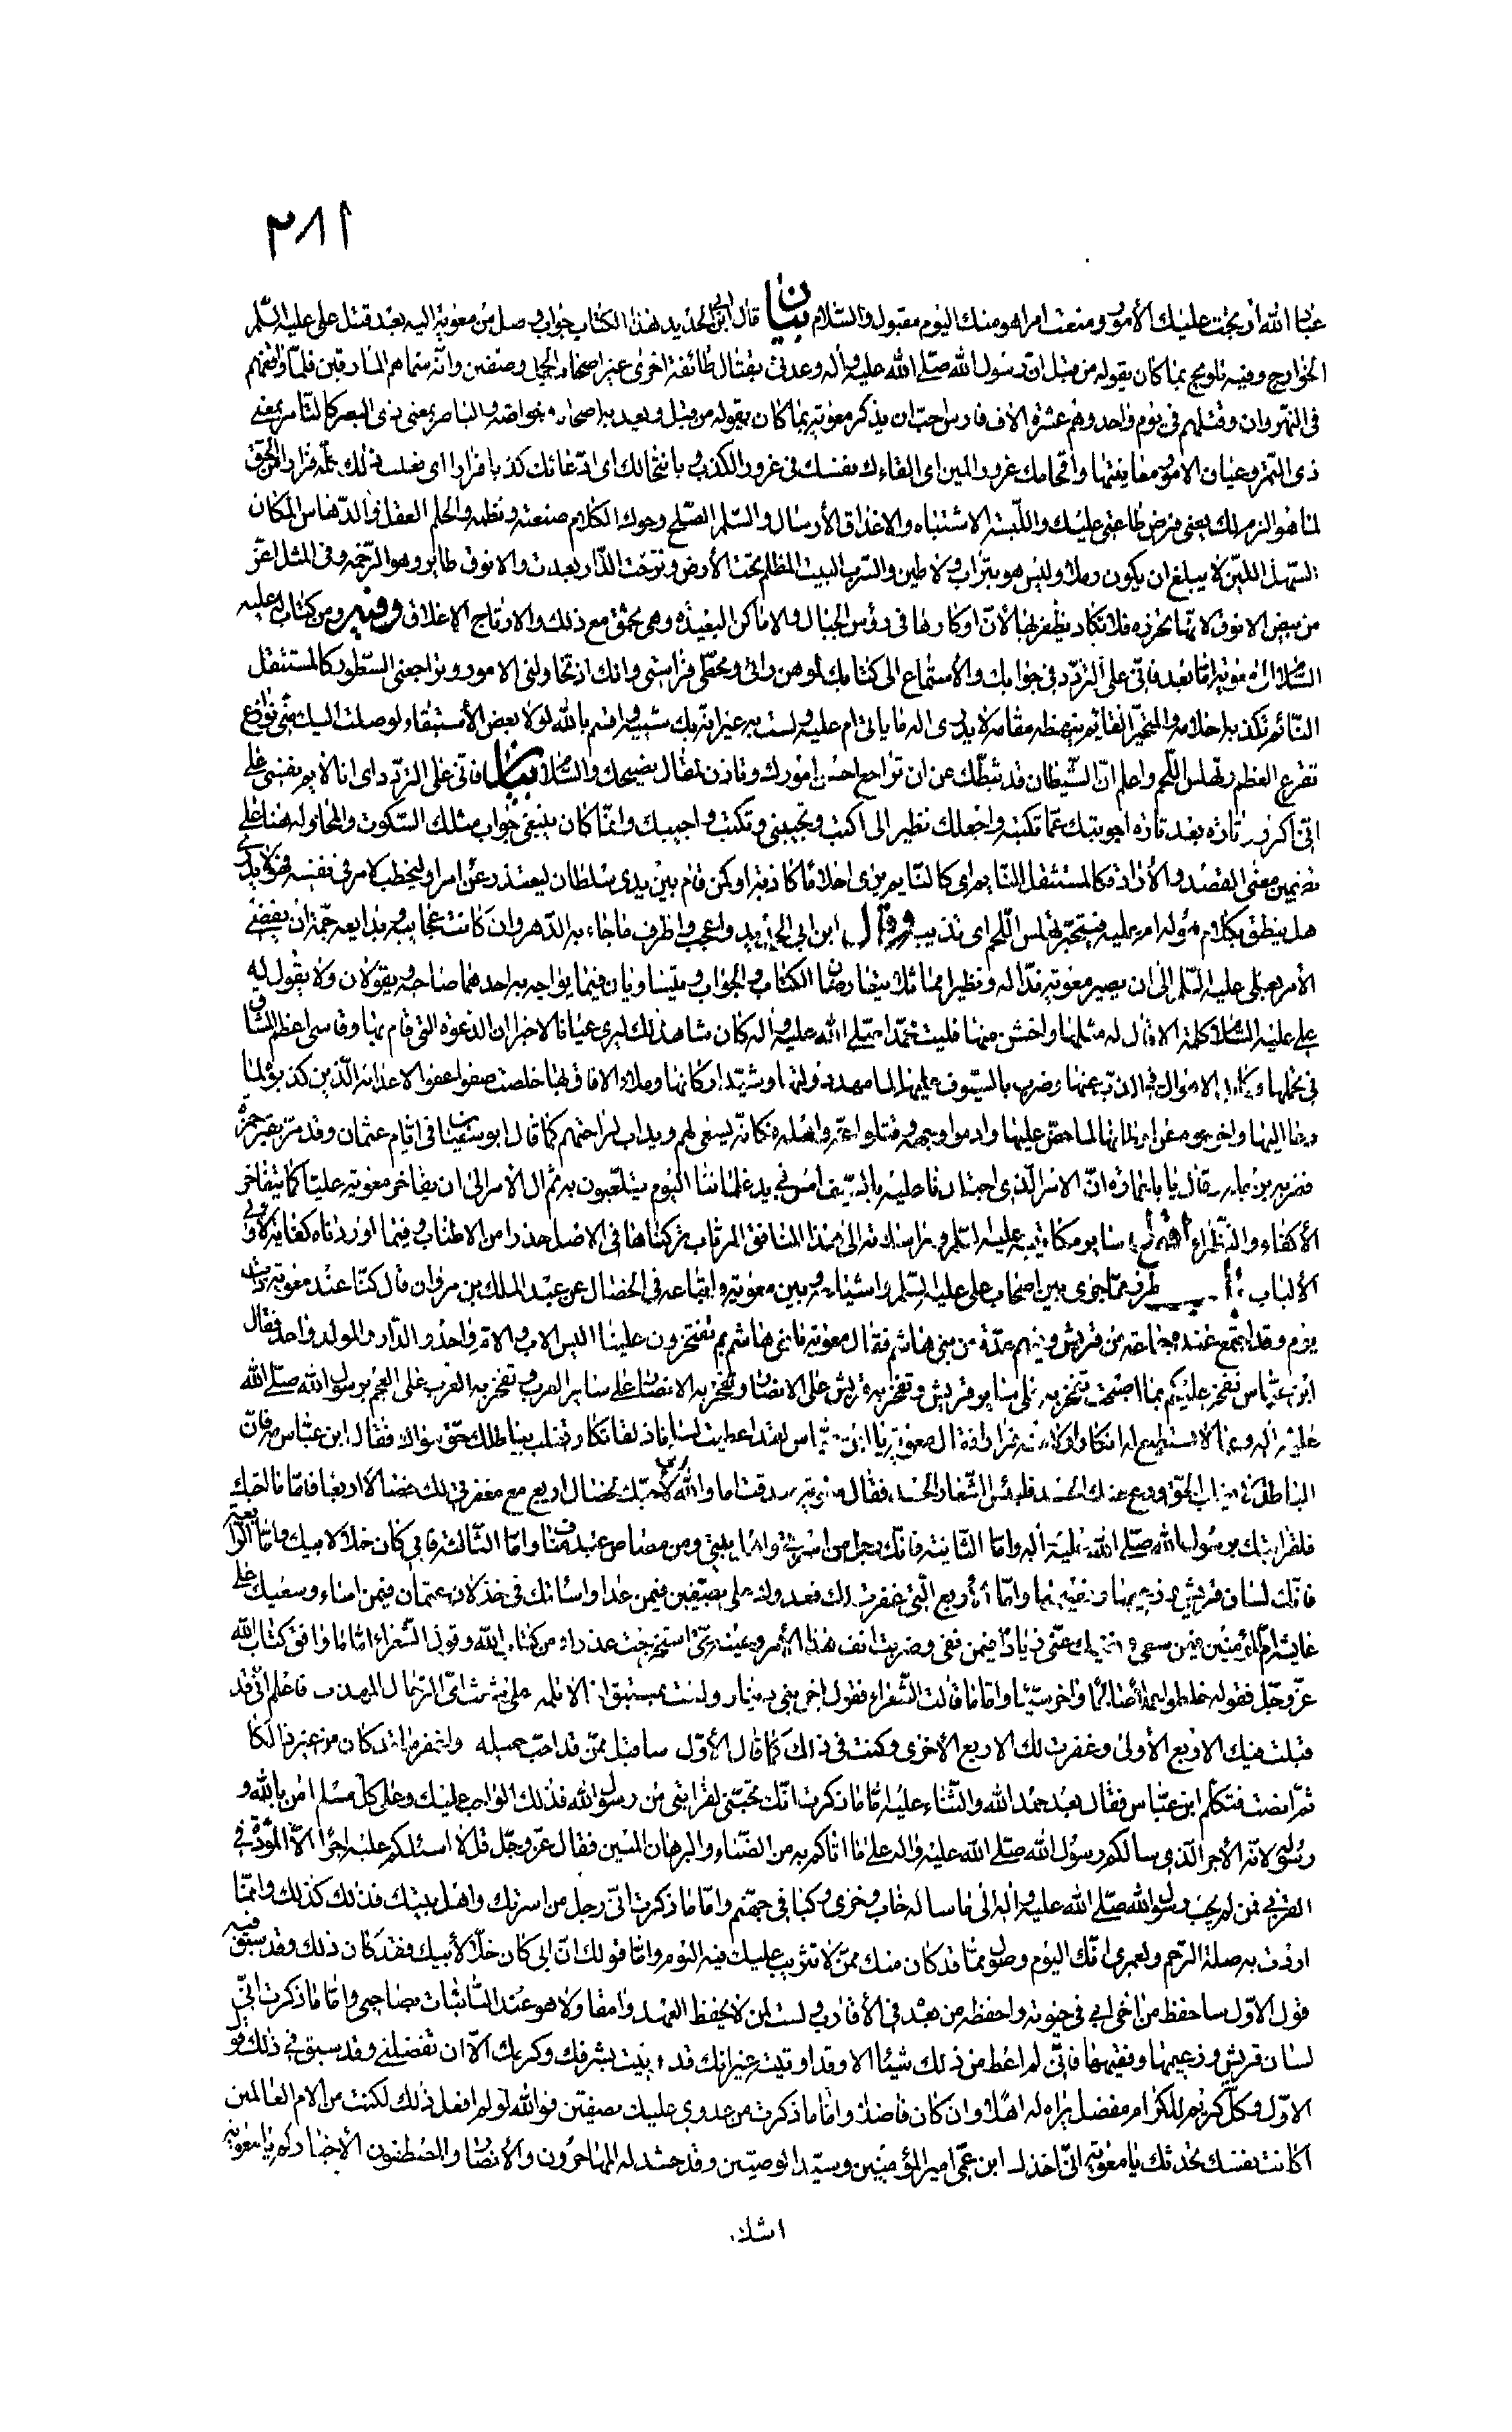 ٢٨١
عباد الله ارتجت عليك الأمور ومنعت امرا هو منك اليوم مقبول والسّلام بيان قال ابن ابى الحديد هذا الكتاب جواب وصل من معوية اليه بعد قتل على عليه السّلم
الخوارج وفيه تلويح بما كان يقوله من قبل انّ رسول الله صلّى الله عليه واله وعدنى بقتال طائفة اخرى غير اصحاب الجمل وصفين وانّه سماهم المارقين فلمّا واقعهم
فى النهروان وقتلهم فى يوم واحد وهم عشرة الاف فارس احبّ ان يذكر معوية بما كان يقوله من قبل ويعد به اصحابه وخواصه والباصر بمعنى ذى البصر كالتامر بمعنى
ذى التمر وعيان الامور معاينتها واقحامك غرور المين اى القاءك نفسك فى غرور الكذب وبانتحالك اى ادّعائك كذبا فرارا اى فعلت ذلك كلّه فرارا من الحقّ
لما هو الزم لك يعنى فرض طاعتى عليك واللّبسة الاشتباه والاغداق الأرسال والسّلم الصّلح وحوك الكلام صنعته ونظمه والحلم العقل والدّهاس المكان
السّهل اللّين لا يبلغ ان يكون رملا وليس هو بتراب ولا طين والسّرب البيت المظلم تحت الأرض ونزحت الدّار بعدت والانوق طاير وهو الرّخمة وفى المثل اعزّ
من بيض الانوق لانّها تحرزه فلا تكاد يظفر بها لأنّ اوكارها فى رؤس الجبال والاماكن البعيدة وهى تحمق مع ذلك والارتاج الاغلاق ومنه ومن كتاب له عليه
السّلام الى معوية امّا بعد فانّى على التردّد فى جوابك والأستماع الى كتابك لموهن رائى ومخطّى فراستى وانك اذ تحاولنى الامور وتراجعنى السّطور كالمستثقل
النّائم تكذبه احلامه والمتحيّر القائم يبهظه مقامه لا يدرى اله ما ياتى ام عليه ولست به غير انّه بك شبيه واقسم بالله لولا بعض الأستبقاء لوصلت اليك منّى نوازع
تقرع العظم وتهلس اللّحم واعلم انّ الشّيطان قد ثبّطك عن ان تراجع احسن امورك وتاذن لمقال نصيحك والسّلام بيان فانّى على التردّد اى انا لائم نفسى على
انّى اكرّر تارة بعد تارة اجوبتك عمّا تكتبه واجعلك نظيرا لى اكتب وتجيبنى وتكتب واجيبك وانّما كان ينبغى جواب مثلك السّكوت والمحاولة هنا على
تضمين معنى القصد والأرادة كالمستثقل النّايم اى كالنّايم يرى احلاما كاذبة او كمن قام بين يدى سلطان ليعتذر عن امر او ليخطب لامر فى نفسه فهو لا يدرى
هل ينطق بكلام هو له ام عليه فيتحيّر تهلس اللّحم اى تذيب وقال ابن ابى الحديد واعجب واطرف ما جاء به الدّهر وان كانت عجايبه وبدايعه جمّة ان يفضى
الأمر بعلى عليه السّلم الى ان يصير معوية ندّا له ونظيرا مماثلا يتفاوضان الكتاب والجواب ويتساويان فيما يواجه به احدهما صاحبه ويقولان ولا يقول له
على عليه السّلام كلمة الا قال له مثلها واخشن منها فليت محمّدا صلّى الله عليه واله كان شاهد ذلك ليرى عيانا لا خبرا ان الدّعوة التى قام بها وقاسى اعظم المشاق
فى تحملها وكابد الاهوال فى الذبّ عنها وضرب بالسّيوف عليها لما مهد دولتها وشيّد اركانها وملأ الافاق بها خلصت صفوا عفوا لاعدائه الّذين كذبوه لما
دعا اليها واخرجوه من اوطانها لما حضّ عليها وادموا وجهه وقتلوا عمّه واهله فكانّه يسعى لهم ويداب لراحتهم كما قال ابو سفيان فى ايّام عثمان وقد مرّ بقبر حمزة
فضربه برجله وقال يا ابا عمارة انّ الامر الّذى اجتلدنا عليه بالسّيف امس فى يد غلماننا اليوم يتلعّبون به ثم ال الأمر الى ان يفاخر معوية عليّا كما يتفاخر
الأكفاء والنّظراء اقول ساير مكاتيبه عليه السّلم ومراسلاته الى هذا المنافق المرتاب تركناها فى الاصل حذرا من الاطناب وفيما اوردناه كفاية لاولى
الألباب باب طرف ممّا جرى بين اصحاب على عليه السّلم واشياعه وبين معوية واتباعه فى الخصال عن عبد الملك بن مروان قال كنّا عند معوية ذات
يوم وقد اجتمع عنده جماعة من قريش وفيهم عدّة من بنى هاشم فقال معوية يا بنى هاشم بم تفتخرون علينا اليس الاب والام واحد والدّار والمولد واحد فقال
ابن عبّاس نفخر عليكم بما اصبحت تفخر به على سايرقريش وتفخر به قريش على الانصار وتفخر به الانصار على ساير العرب وتفخر به العرب على العجم برسول الله صلّى الله
عليه واله وبما لا تستطيع له انكارا ولا منه فرارا فقال معوية يا ابن عبّاس لقد اعطيت لسانا ذلقا تكاد تغلب بباطلك حقّ سواك فقال ابن عبّاس مه فانّ
الباطل لا يغلب الحقّ ودع عنك الحسد فلبئس الشّعار الحسد فقال معوية صدقت اما والله انّى لأحبّك لخصال اربع مع مغفرتى لك خصالا اربعا فامّا ما احبّك
فلقرابتك برسول الله صلّى الله عليه واله وامّا الثّانية فانّك رجل من اسرتى واهل بيتى ومن مصاص عبد مناف وامّا الثّالثة فابى كان خلّا لابيك وامّا الرّابعة
فانّك لسان قريش وزعيمها وفقيهها وامّا الأربع الّتى غفرت لك فعدوك علىّ بصفّين فيمن عدا واسائتك فى خذلان عثمان فيمن اساء وسعيك على
عايشة امّ المؤمنين فيمن سعى ونفيك عنّى زيادا فيمن نفى وضربت انف هذا الأمر وعينه حتّى استخرجت عذرك من كتاب الله وقول الشّعراء امّا ما وافق كتاب الله
عزّ وجلّ فقوله خلطوا عملا صالحا واخر سيّئا وامّا ما قالت الشّعراء فقول اخى بنى ذبيان ولست بمستبق اخا لا تلمه على شعث اىّ الرّجال المهذب فاعلم انّى قد
قبلت فيك الاربع الأولى وغفرت لك الاربع الأخرى وكنت فى ذلك كما قال الأوّل ساقبل ممّن قد احبّ جميله واغفر ما قد كان من غير ذالكا
ثمّ انصت فتكلّم ابن عبّاس فقال بعد حمد الله والثّناء عليه امّا ما ذكرت انّك تحبّنى لقرابتى من رسول الله فذلك الواجب عليك وعلى كلّ مسلم امن بالله و
رسوله لانّه الأجر الّذى سالكم رسول الله صلّى الله عليه واله على ما اتاكم به من الضّياء والبرهان المبين فقال عزّ وجلّ قل لا اسئلكم عليه اجرا الّا المودّة فى
القربى فمن لم يجب رسول الله صلّى الله عليه واله الى ما ساله خاب وخزى وكبا فى جهنّم وامّا ما ذكرت انّى رجل من اسرتك واهل بيتك فذلك كذلك وانّما
اردت به صلة الرّحم ولعمرى انّك اليوم وصول ممّا قد كان منك ممّا لا تثريب عليك فيه اليوم وامّا قولك انّ ابى كان خلّا لأبيك فقد كان ذلك وقد سبق فيه
قول الاوّل ساحفظ من اخى ابى فى حيوته واحفظه من بعد فى الأقارب ولست لمن لا يحفظ العهد وامقا ولا هو عند النّائبات بصاحبى وامّا ما ذكرت انّى
لسان قريش وزعيمها وفقيهها فانّى لم اعط من ذلك شيئا الا وقد اوتيته غير انك قد ابيت بشرفك وكرمك الّا ان تفضلنى وقد سبق فى ذلك قول
الاوّل وكلّ كريم للكرام مفضل يراه له اهلا وان كان فاضلا وامّا ما ذكرت من عدوى عليك بصفّين فوالله لو لم افعل ذلك لكنت من الام العالمين
اكانت نفسك تحدثك يا معوية انّى اخذل ابن عمّى امير المؤمنين وسيّد الوصيّين وقد حشد له المهاجرون والأنصار والمصطفون الأخيار لم يا معوية
اشك